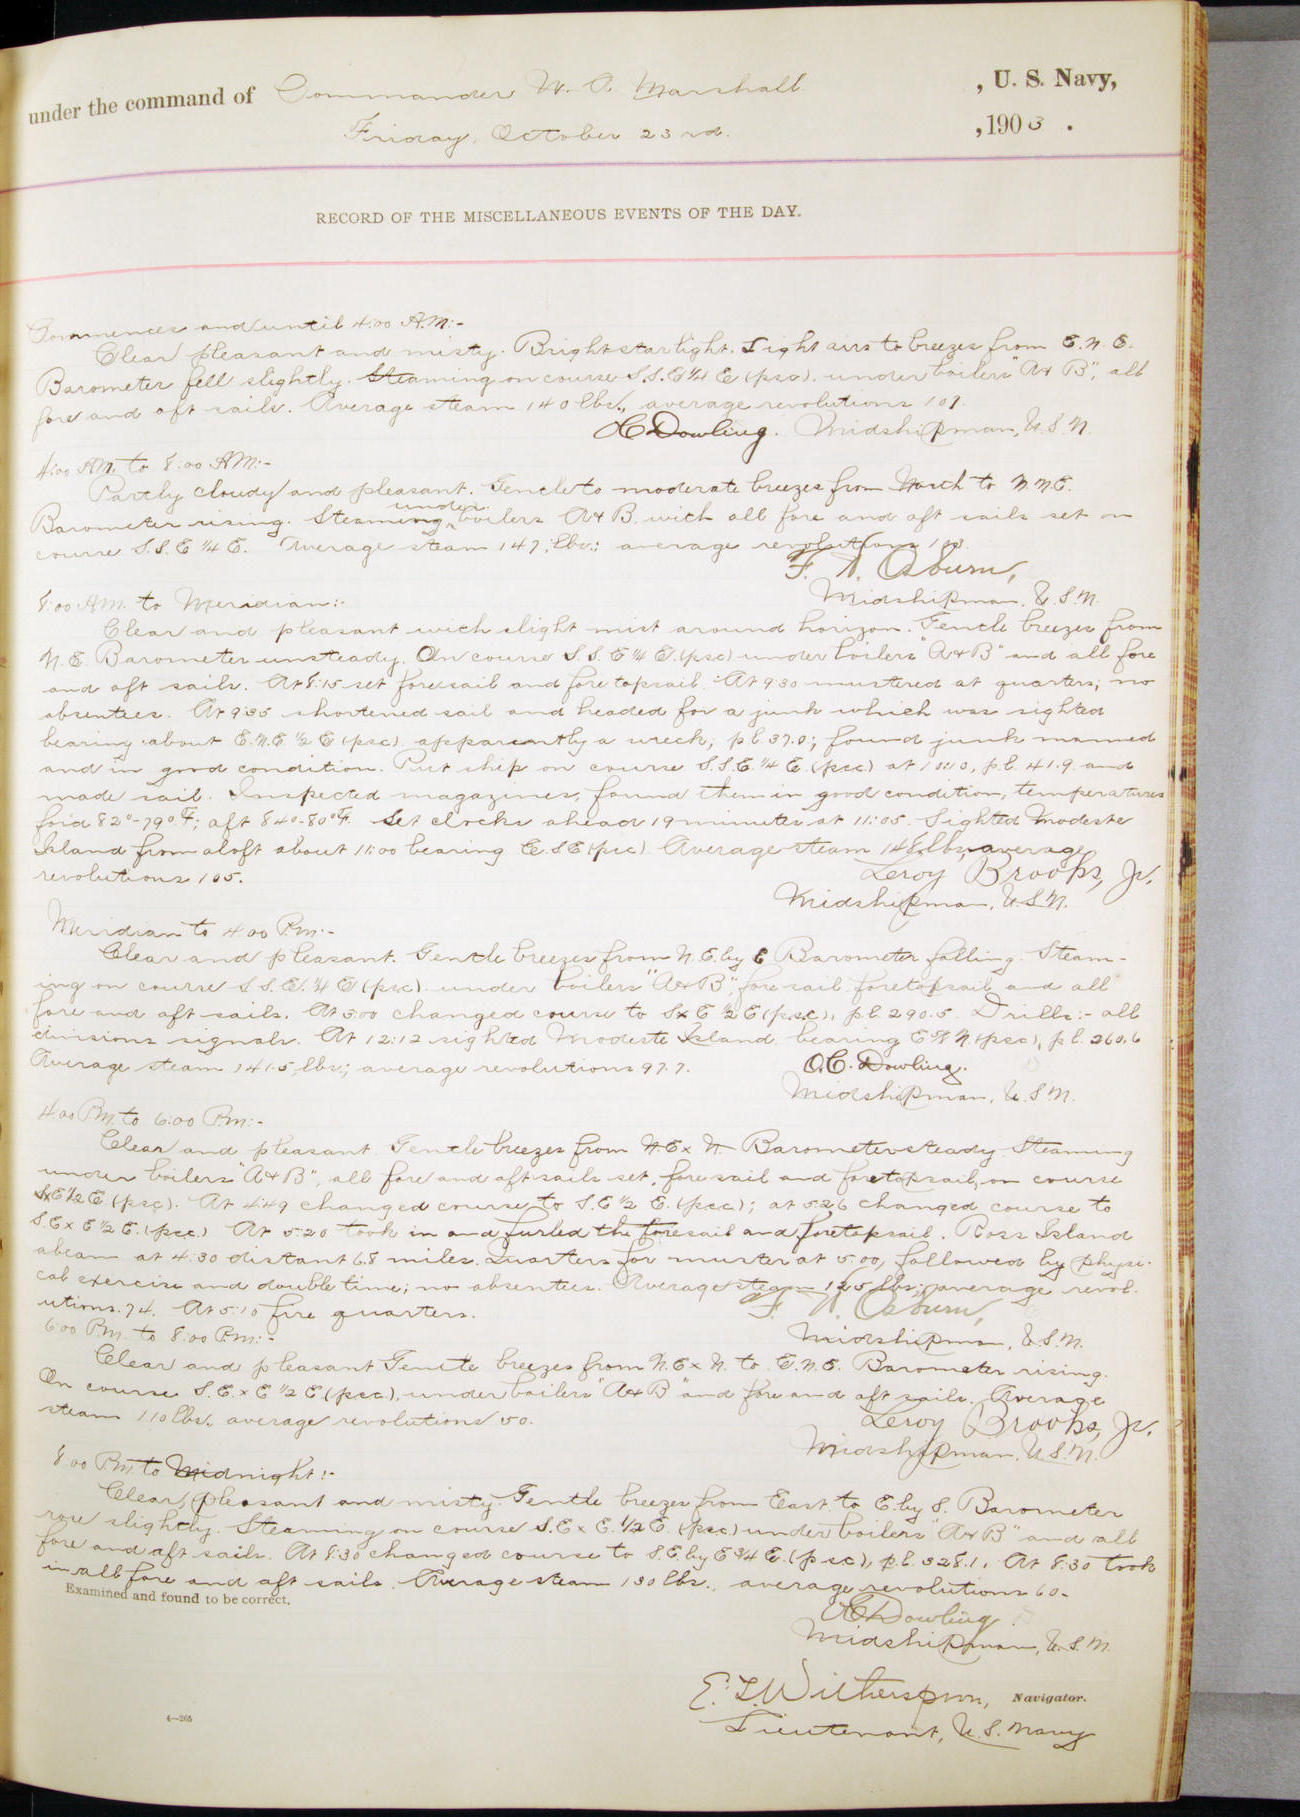 under the command of Commander W. A. Marshall, U. S. Navy,
Friday, October 23rd, 1903.
RECORD OF THE MISCELLANEOUS EVENTS OF THE DAY.
Commences and until 4:00 A.M:-
Clear pleasant and misty. Bright starlight. Light airs to breezes from E.N.E.
Barometer fell slightly. Steaming on course S.S.E ¼ E (psc). under boilers "A & B", all
fore and aft sails. Average steam 140 lbs., average revolutions 107.
O.C. Dowling. Midshipman, U.S.N.
4:00 A.M. to 8:00 A.M:-
Partly cloudy and pleasant. Gentle to moderate breezes from North to N.N.E.
Barometer rising. Steaming under boilers A & B. with all fore and aft sails set on
course S.S.E ¼ E. Average steam 147, lbs.; average revolutions 103.
F. N. Osburn,
Midshipman, U.S.N.
8:00 A.M. to Meridian:-
Clear and pleasant with slight mist around horizon. Gentle breezes from
N.E. Barometer unsteady. On course S.S.E ¼ E. (psc) under boilers "A & B" and all fore
and aft sails. At 8:15 set foresail and fore topsail. At 9:30 mustered at quarters; no
absentees. At 9:35 shortened sail and headed for a junk which was sighted
bearing about E.N.E ½ E (psc) apparently a wreck; p.l. 37.0; found junk manned
and in good condition. Put ship on course S.S.E. ¼ E. (psc) at 10:10, p.l. 41.9. and
made sail. Inspected magazines, found them in good condition, temperatures
for'd 82°-79° F; aft 84°-80° F. Set clocks ahead 19 minutes at 11:05. Sighted Modeste
Island from aloft about 11:00 bearing E.S.E (psc) Average steam 148 lbs, average
revolutions 105.
Leroy Brooks, Jr.
Midshipman, U.S.N.
Meridian to 4:00 P.m:-
Clear and pleasant. Gentle breezes from N.E. by E Barometer falling. Steam-
ing on course S.S.E. ¼ E (psc) under boilers "A & B", foresail foretopsail and all
fore and aft sails. At 3:00 changed course to SxE ½ E (psc), p.l. 290.5. Drills:- all
divisions signals. At 12:12 sighted Modeste Island bearing (psc), p.l. 260.6
Average steam 141.5, lbs.; average revolutions 97.7.
O.C. Dowling.
Midshipman, U.S.N.
4:00 P.M. to 6:00 P.m:-
Clear and pleasant. Gentle breezes from N.E x N. Barometer steady Steaming
under boilers "A & B", all fore and aft sails set, foresail and foretopsail, on course
SxE ½ E. (psc). At 4:49 changed course to S.E ½ E. (psc); at 5:26 changed course to
S.E x E ½ E. (psc) At 5:20 took in and furled the foresail and foretopsail. Ross Island
abeam at 4:30 distant 6.8 miles. Quarters for muster at 5:00, followed by physi-
cal exercise and double time; no absentees. Average steam 125 lbs; average revol-
utions. 74. At 5:10 fire quarters.
F. N. Osburn,
Midshipman, U.S.N.
6:00 P.M. to 8:00 P.m:-
Clear and pleasant Gentle breezes from N.E x N. to E.N.E. Barometer rising.
On course S.E. x E ½ E. (psc). under boilers "A & B" and fore and aft sails. Average
steam 110 lbs., average revolutions 50.
Leroy Brooks, Jr.
Midshipman, U.S.N.
8:00 P.M. to Midnight:-
Clear, pleasant and misty. Gentle breezes from East to E. by S. Barometer
rose slightly. Steaming on course S.E x E. ½ E. (psc) under boilers "A & B" and all
fore and aft sails. At 8:30 changed course to S.E. by E ¾ E. (psc), p.l. 328.1. At 8:30 took
in all fore and aft sails. Average steam 130 lbs., average revolutions 60.
Examined and found to be correct.
O.C. Dowling
Midshipman, U.S.N.
E. T. Witherspoon, Navigator.
Lieutenant, U.S. Navy
4—265